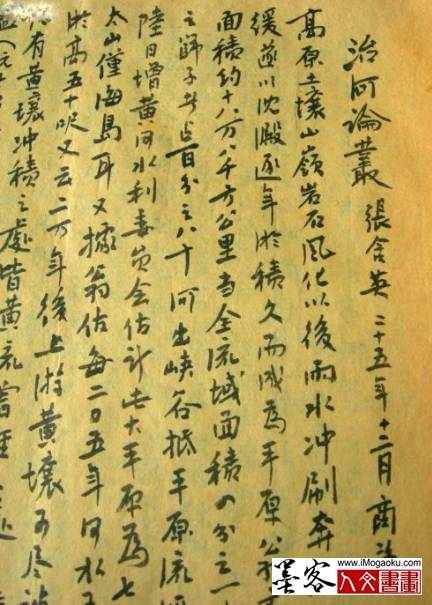 治河論叢 張含英 二十五年十二月 商
高原土壤山嶺岩石風化以後雨水冲刷奔
緩遂以沈澱逐年淤積久而成為平原
面積約十八万八千方公里当全流域面積四分之一
之歸子者占百分之八十河出峽谷抵平原流
陸日增黃河水利委員会估計此大平原為七
太山僅海島耳又據翁估每二〇五年河水
淤高五十呎又云二万年後上游黃壤可尽
有黃壤冲積之處皆黃流
墨客
人文書畫
www.iMogaoku.com